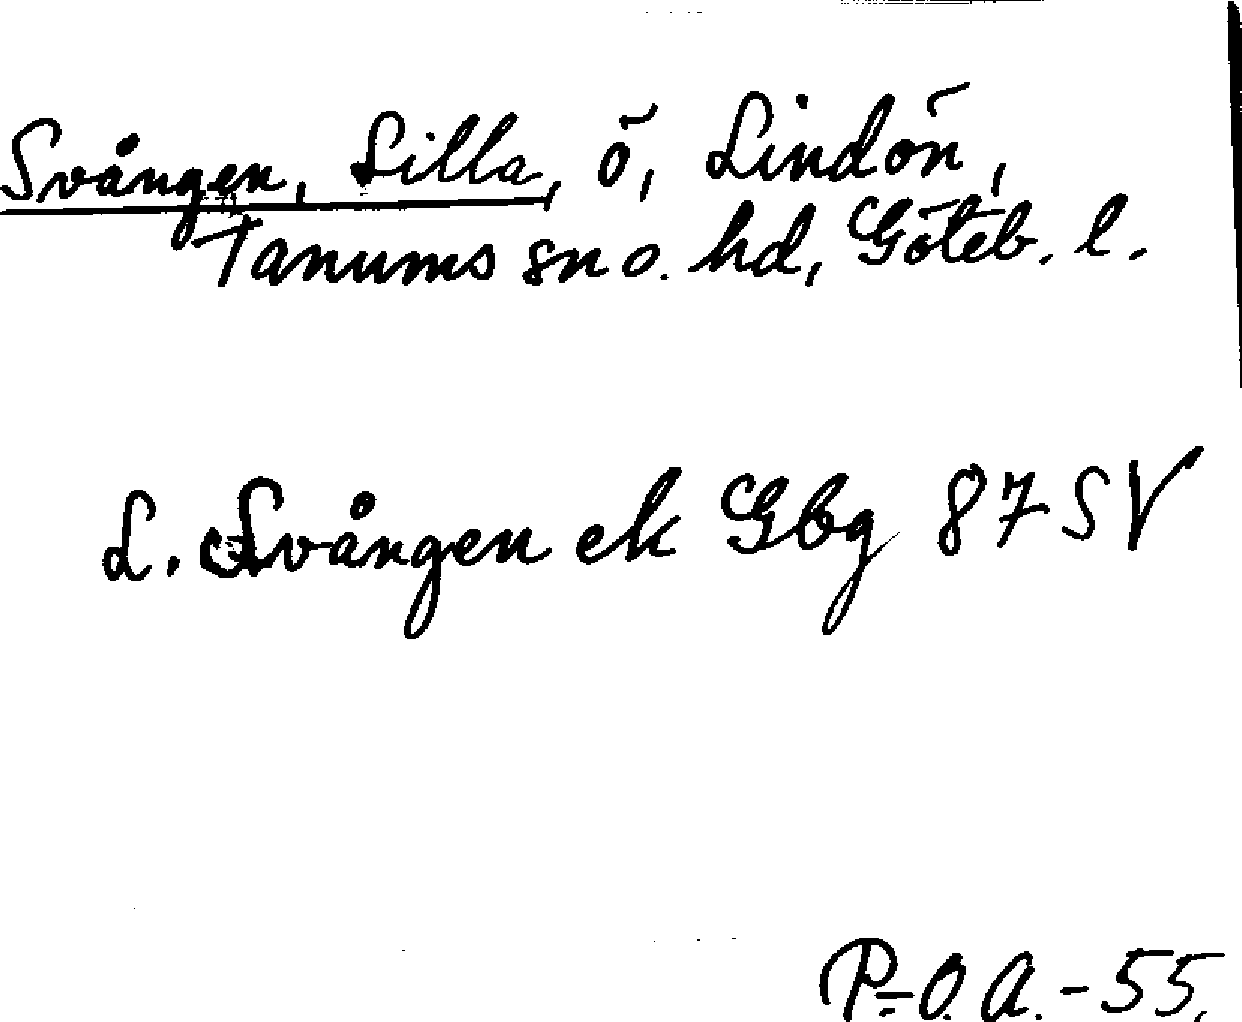 Svången, Lilla, ö, Lindön,
Tanums sn o. hd, Göteb. l.
L. Svången ek Gbg 87 SV
P-O.A.-55.